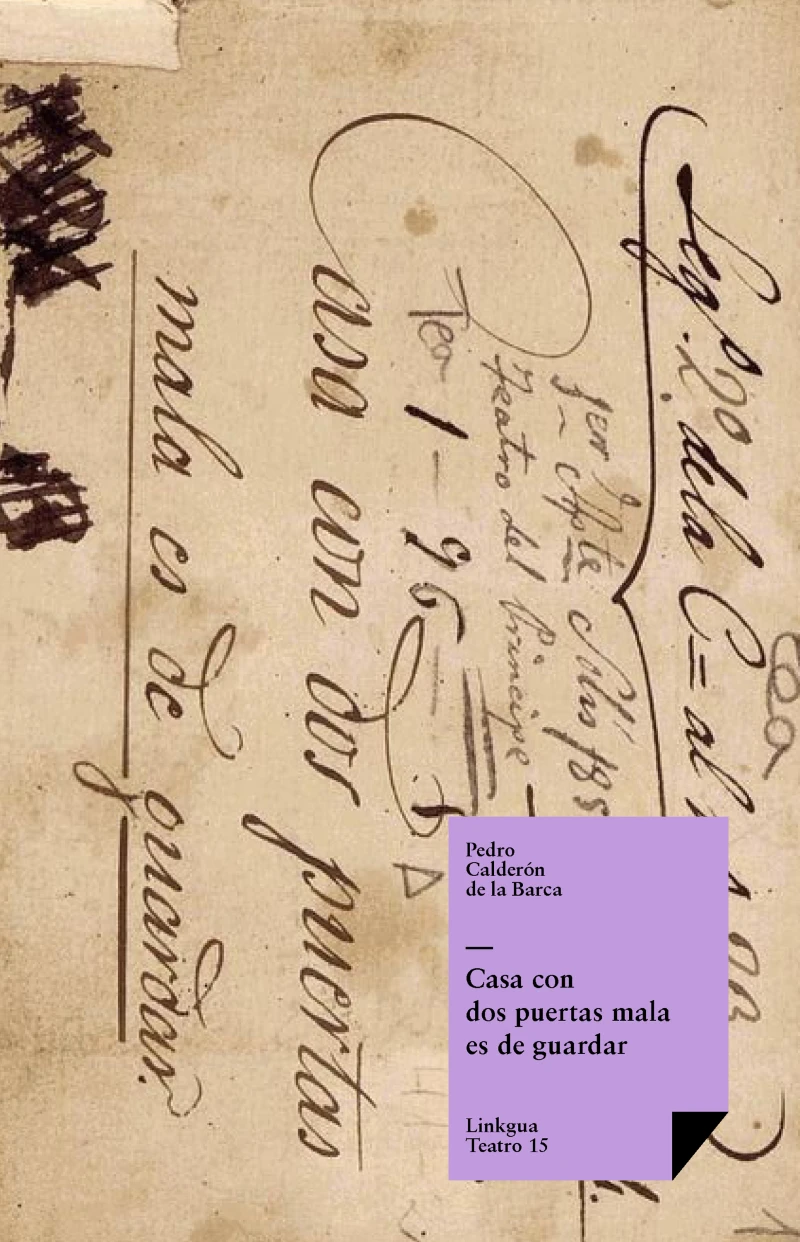 Leg.º 20 de la C= al
Teatro del Principe
Tea
1 - 95
Casa con dos puertas
mala es de guardar.
Tea
Pedro
Calderón
de la Barca
—
Casa con
dos puertas mala
es de guardar
Linkgua
Teatro 15